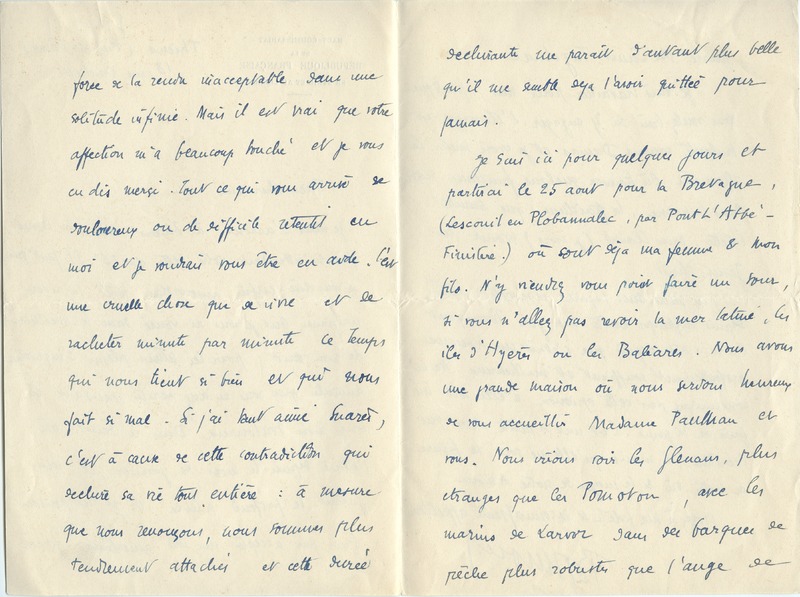 force de la rendre inacceptable dans une
solitude infinie. Mais il est vrai que votre
affection m'a beaucoup touché et je vous
en dis merci. Tout ce qui vous arrive de
douloureux ou de difficile retentit en
moi et je voudrais vous être en aide. C'est
une cruelle chose que de vivre et de
racheter minute par minute ce temps
qui nous tient si bien et qui nous
fait si mal. Si j'ai tant aimé Suarès,
c'est à cause de cette contradiction qui
déchire sa vie tout entière : à mesure
que nous renonçons, nous sommes plus
tendrement attachés et cette durée
déchirante me paraît d'autant plus belle
qu'il me semble déjà l'avoir quittée pour
jamais.
Je suis ici pour quelques jours et
partirai le 25 août pour la Bretagne,
(Lesconil en Plobannalec, par Pont L'Abbé -
Finistère.) où sont déja ma femme & mon
fils. N'y viendrez vous point faire un tour,
si vous n'allez pas revoir la mer latine, les
iles d'Hyères ou les Baléares. Nous avons
une grande maison où nous serions heureux
de vous accueillir Madame Paulhan et
vous. Nous irions voir les Glénans, plus
étranges que les Pomotou, avec les
marins de Larvor dans des barques de
pêche plus robustes que l'ange de